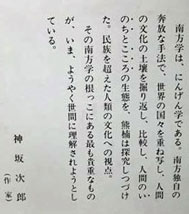 南方学は、にんげん学である。南方独自の
奔放な手法で、世界の国々を重ね写し、人間
の文化の土壌を掘り返し、比較し、人間のい
のちとこころの生態を、熊楠は探究しつづけ
た。民族を超えた人類の文化への視点。
その南方学の根っこにある最も貴重なもの
が、いま、ようやく世間に理解されようとし
ている。
神坂次郎
（作家）